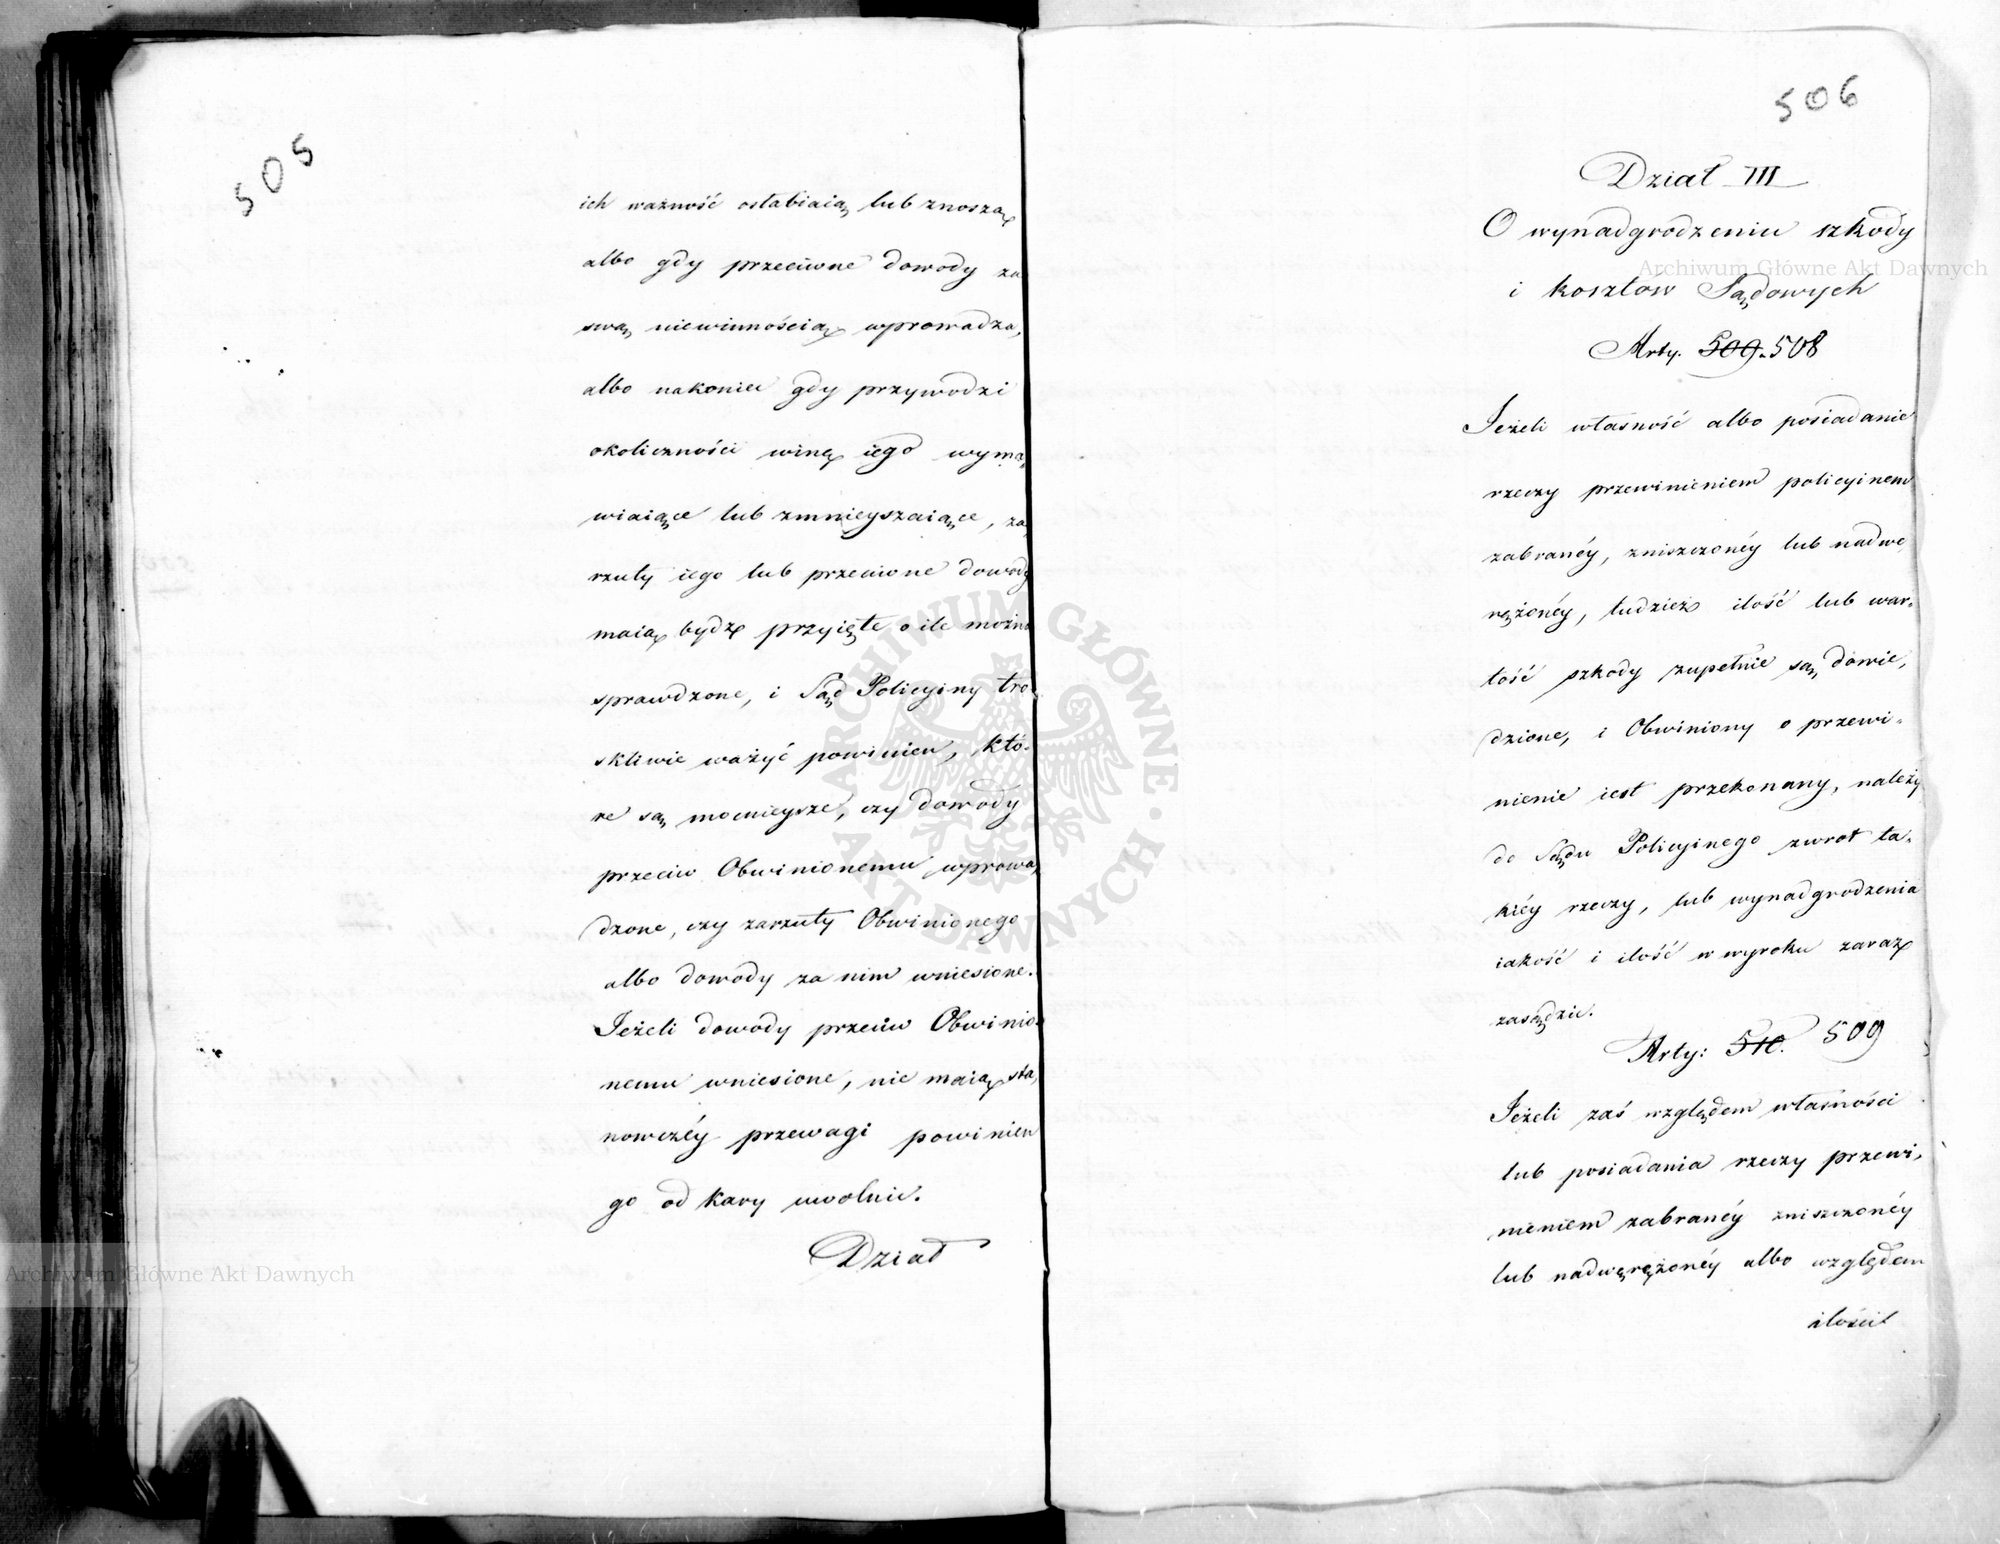 505
ich ważność osłabiaią lub znoszą
albo gdy przeciwne dowody za
swą niewinnością wprowadza,
albo nakoniec gdy przywodzi
okoliczności winę iego wyma,
wiaiące lub zmnieyszaiące, za,
rzuty iego lub przeciwne dowody
maią bydź przyięte o ile można
sprawdzone, i Sąd Policyiny tro-
skliwie ważyć powinien, któ-
re są mocnieysze, czy dowody
przeciw Obwinionemu wprowa,
dzone, czy zarzuty Obwinionego
albo dowody za nim wniesione.
Jeżeli dowody przeciw Obwinio-
nemu wniesione, nie maią sta,
nowczéy przewagi powinien
go od kary uwolnić.
Dział
506
Dział III
O wynadgrodzeniu szkody
i kosztow Sądowych
Arty. 509. 508
Jeżeli własność albo posiadanie
rzeczy przewinieniem policyinem
zabranéy, zniszczonéy lub nadwe,
rężonéy, tudzież ilość lub war-
tość szkody zupełnie są dowie,
dzione, i Obwiniony o przewi-
nienie iest przekonany, należy
do Sądu Policyinego zwrot ta-
kiéy rzeczy, lub wynadgrodzenia
iakość i ilość w wyroku zaraz
zasądzić.
Arty: 510. 509
Jeżeli zaś względem własności
lub posiadania rzeczy przewi,
nieniem zabranéy zniszczonéy
lub nadwęrężonéy albo względem
ilości
Archiwum Główne Akt Dawnych
Archiwum Główne Akt Dawnych
ARCHIWUM GŁÓWNE · AKT DAWNYCH ·